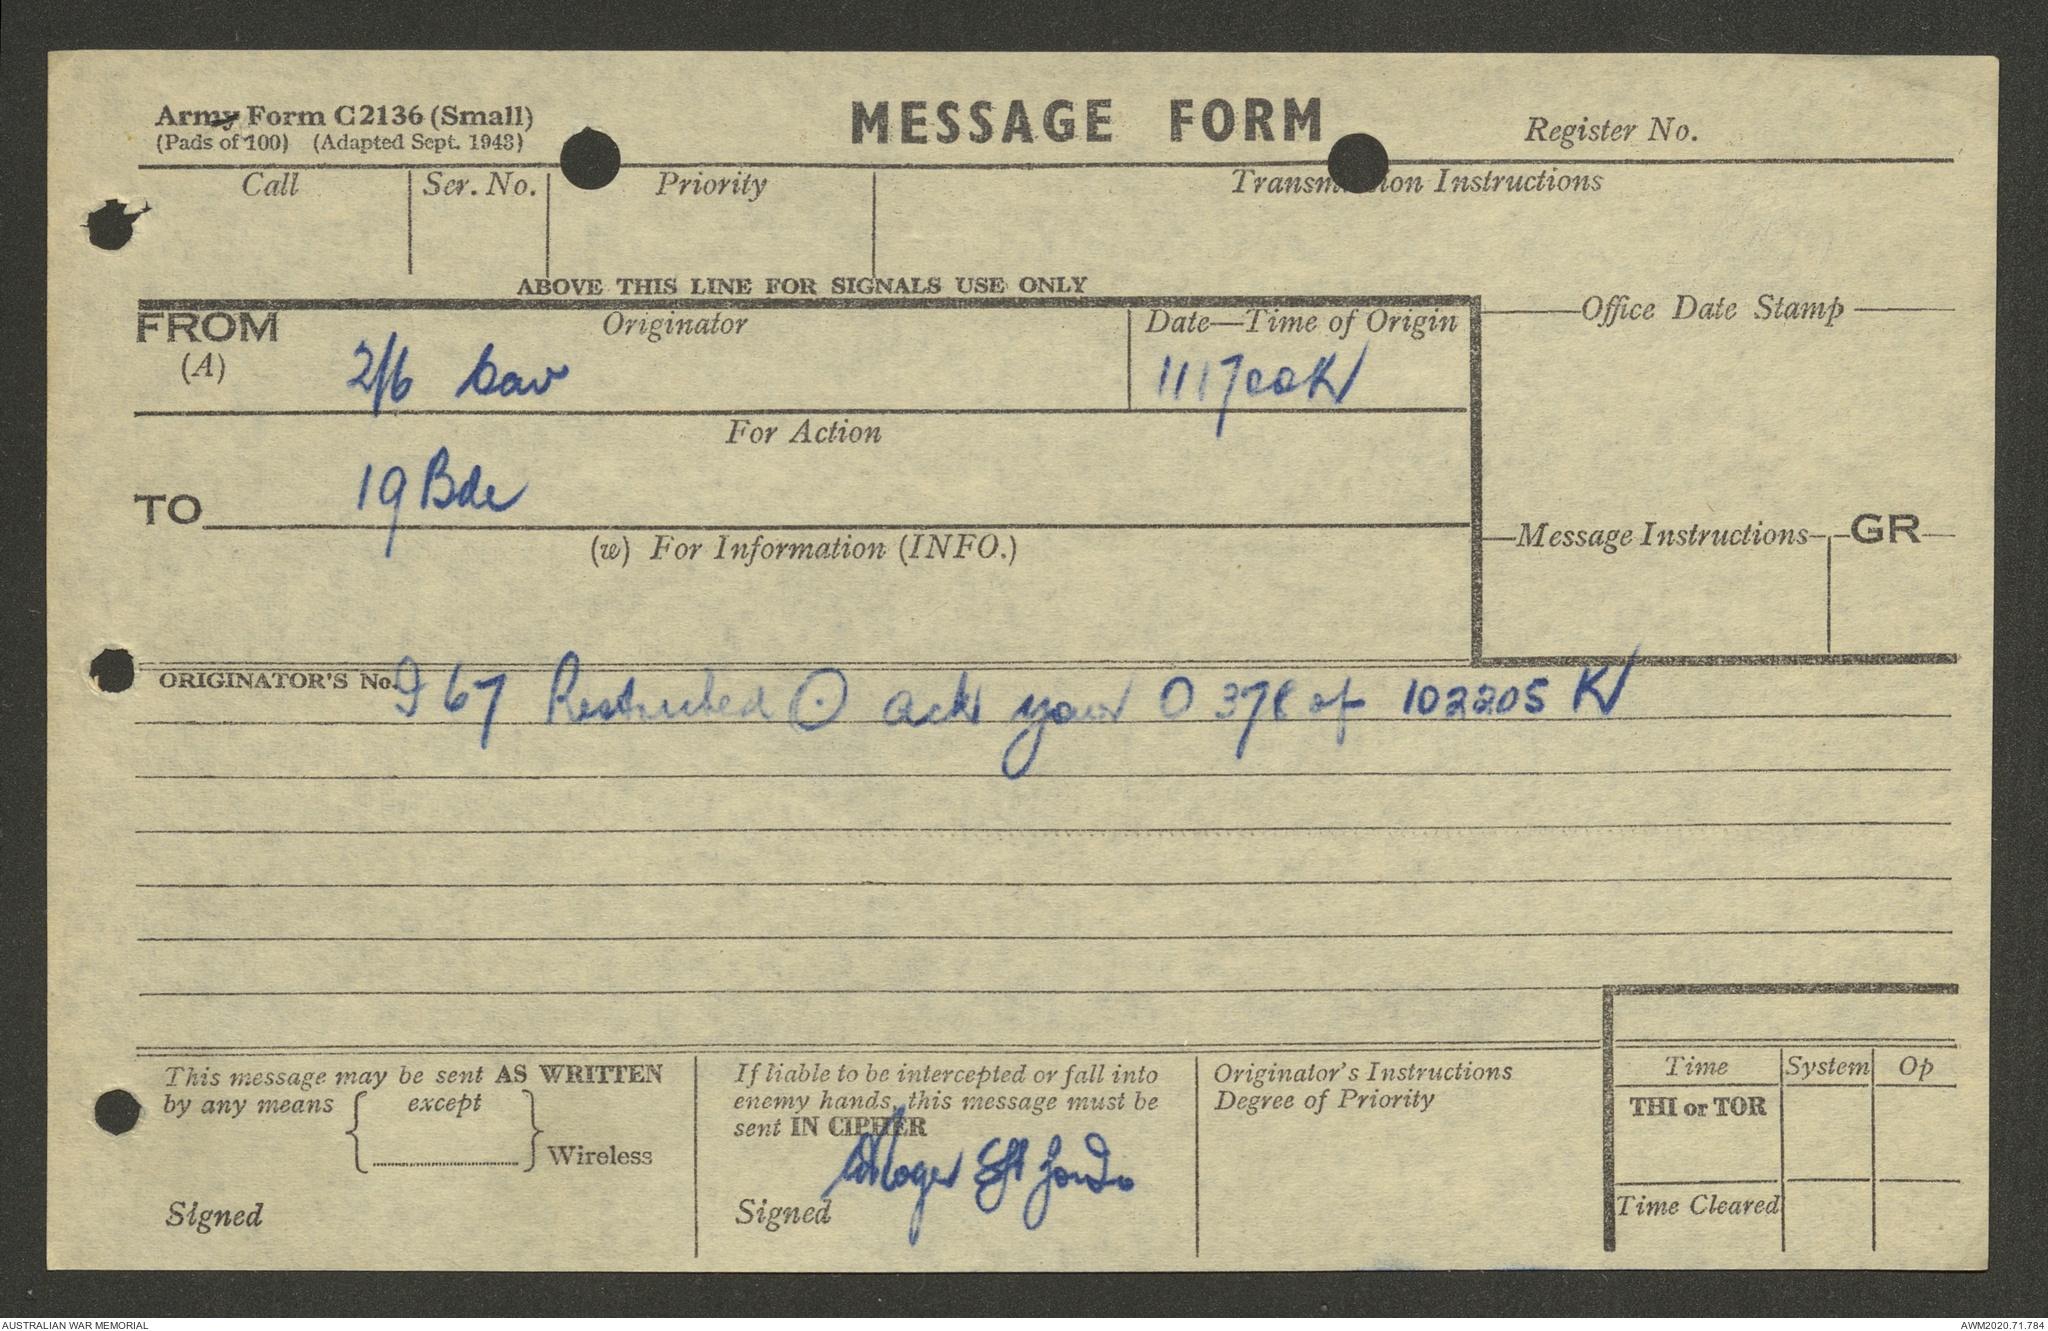 Army Form C2136 (Small)
(Pads of 100) (Adapted Sept. 1943)
MESSAGE FORM
Register No.
Call
Ser. No.
Priority
Transmission Instructions
ABOVE THIS LINE FOR SIGNALS USE ONLY
FROM
(A)
Originator
2/6 Cav
Date—Time of Origin
111700K
Office Date Stamp
For Action
TO
19 Bde
(w) For Information (INFO.)
Message Instructions
GR
ORIGINATOR'S No. I 67 Restricted ⊙ ack your O 378 of 102205 K
This message may be sent AS WRITTEN
by any means { except } Wireless
Signed
If liable to be intercepted or fall into
enemy hands, this message must be
sent IN CIPHER
Signed
Originator's Instructions
Degree of Priority
Time
System
Op
THI or TOR
Time Cleared
AUSTRALIAN WAR MEMORIAL
AWM2020.71.784